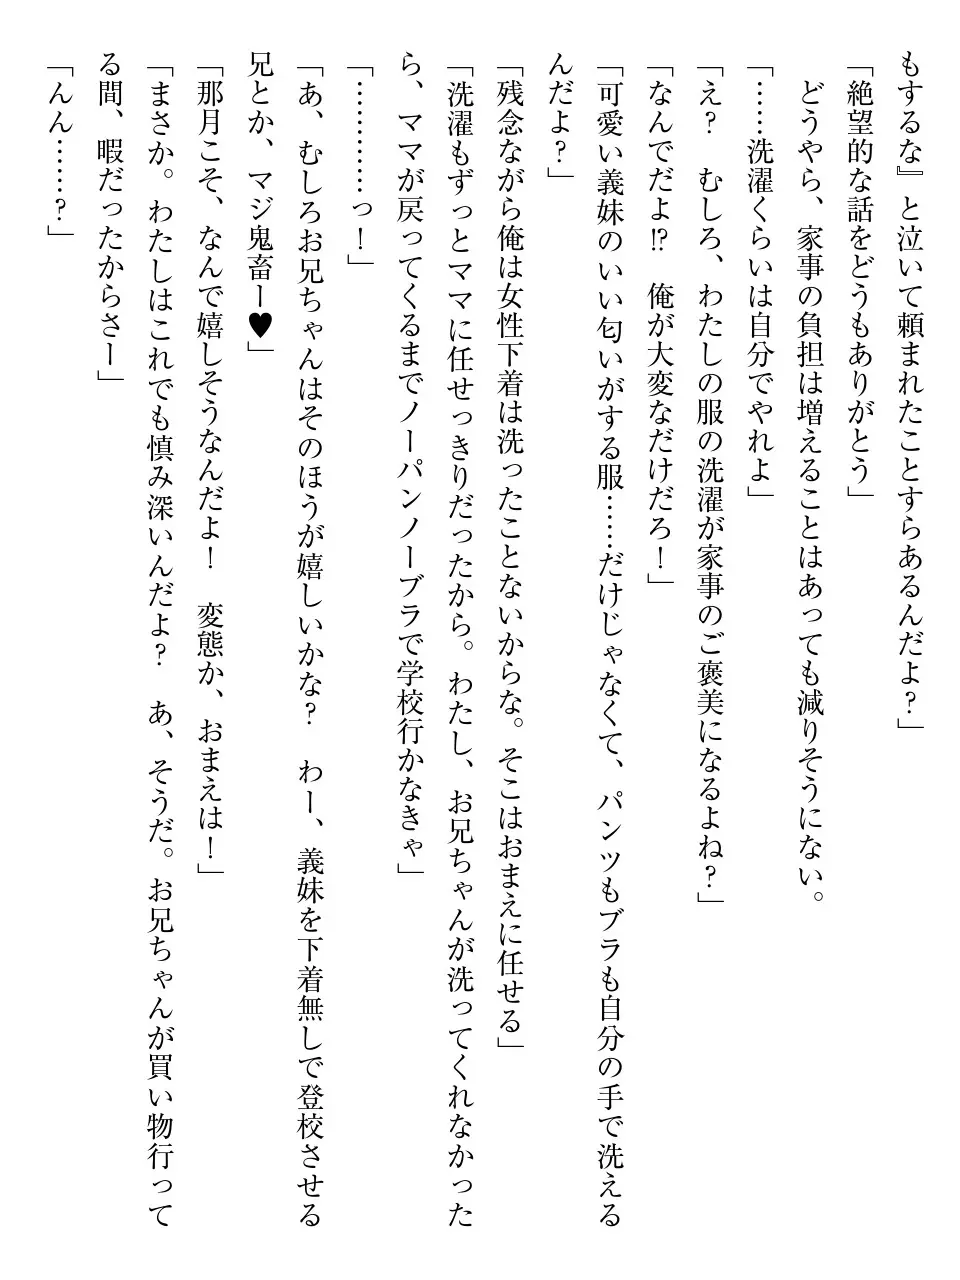 もするな』と泣いて頼まれたことすらあるんだよ？」
「絶望的な話をどうもありがとう」
　どうやら、家事の負担は増えることはあっても減りそうにない。
「……洗濯くらいは自分でやれよ」
「え？　むしろ、わたしの服の洗濯が家事のご褒美になるよね？」
「なんでだよ⁉　俺が大変なだけだろ！」
「可愛い義妹のいい匂いがする服……だけじゃなくて、パンツもブラも自分の手で洗える
んだよ？」
「残念ながら俺は女性下着は洗ったことないからな。そこはおまえに任せる」
「洗濯もずっとママに任せっきりだったから。わたし、お兄ちゃんが洗ってくれなかった
ら、ママが戻ってくるまでノーパンノーブラで学校行かなきゃ」
「…………っ！」
「あ、むしろお兄ちゃんはそのほうが嬉しいかな？　わー、義妹を下着無しで登校させる
兄とか、マジ鬼畜ー♥」
「那月こそ、なんで嬉しそうなんだよ！　変態か、おまえは！」
「まさか。わたしはこれでも慎み深いんだよ？　あ、そうだ。お兄ちゃんが買い物行って
る間、暇だったからさー」
「んん……？」